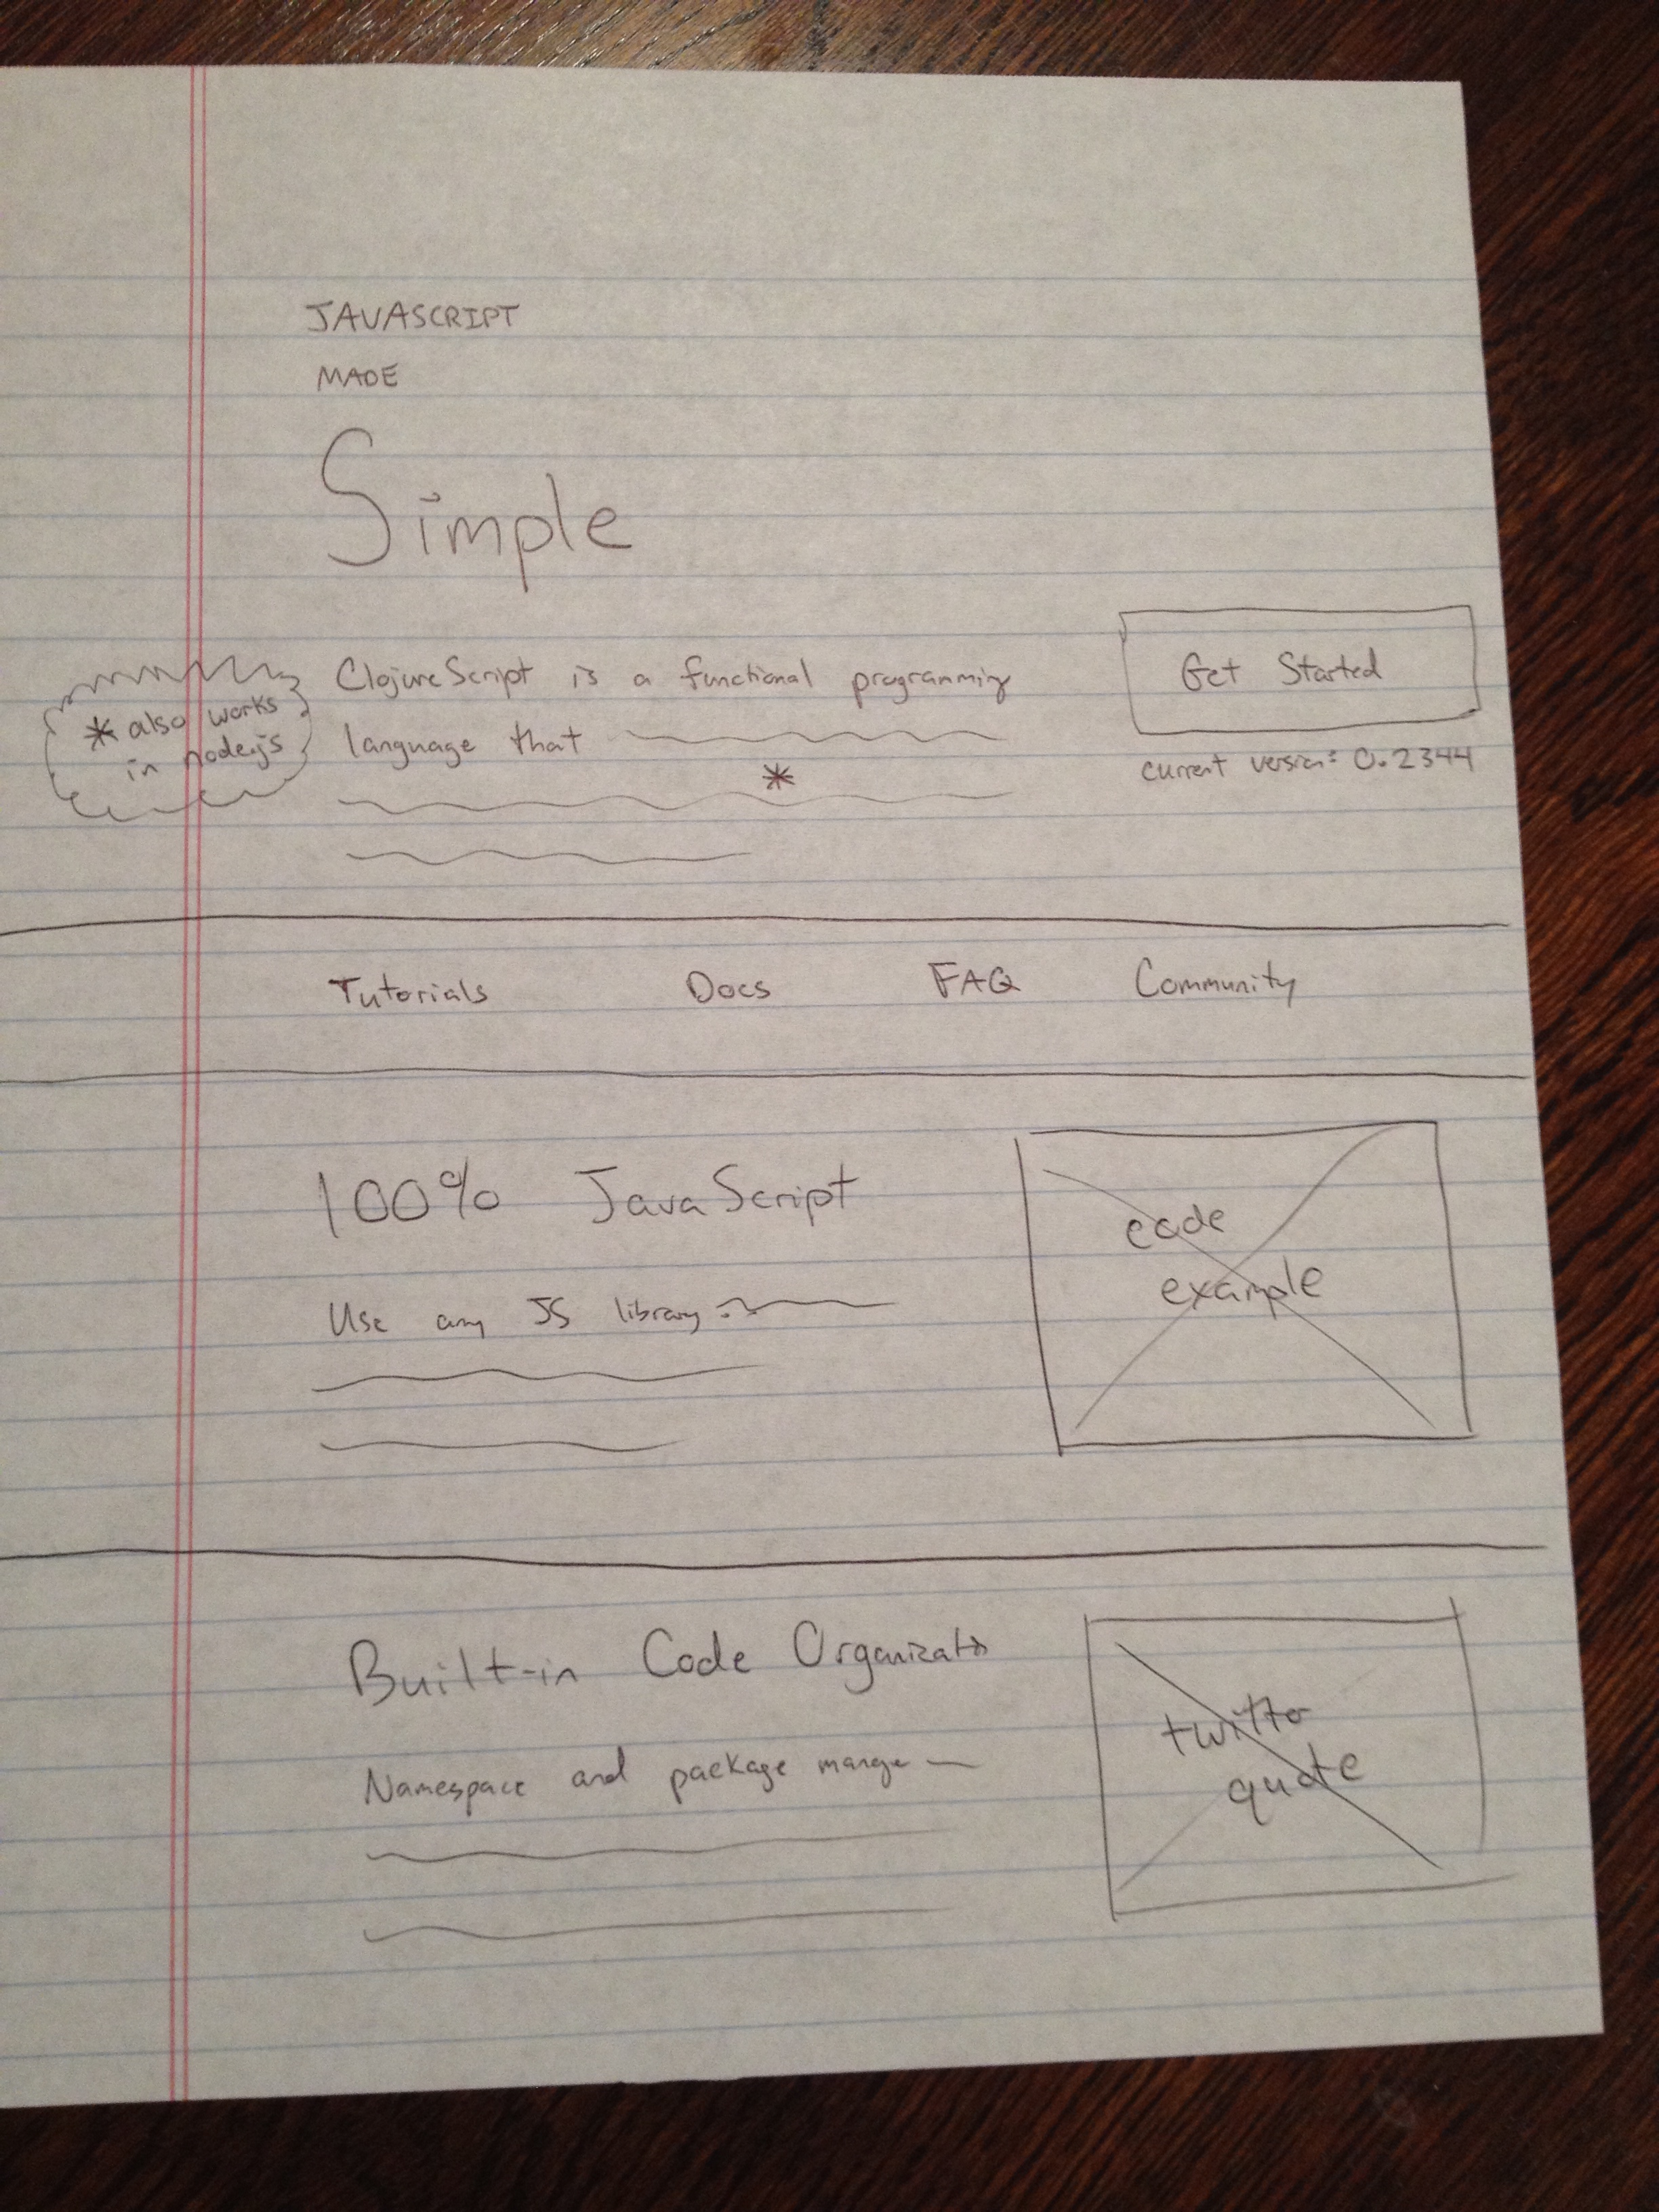 JAVASCRIPT
MADE
Simple
ClojureScript is a functional programming
language that
*
* also works
in node.js
Get Started
current version: 0.2344
Tutorials Docs FAQ Community
100% JavaScript
Use any JS library
code
example
Built-in Code Organizato
Namespace and package manage
twitter
quote